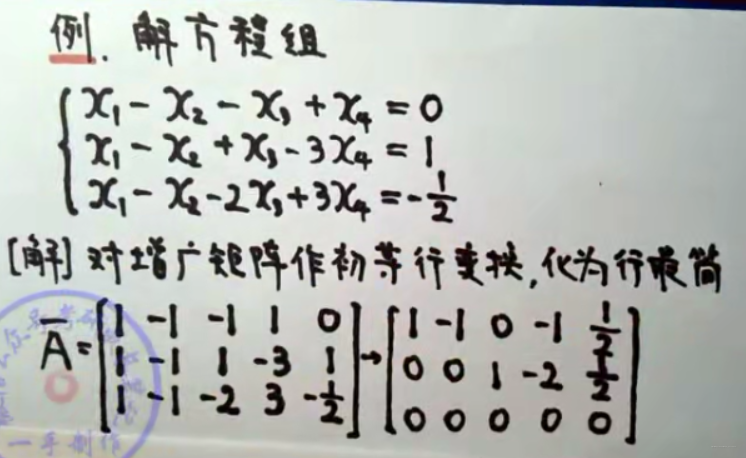 例. 解方程组
x₁ - x₂ - x₃ + x₄ = 0
x₁ - x₂ + x₃ - 3x₄ = 1
x₁ - x₂ - 2x₃ + 3x₄ = -1/2
[解] 对增广矩阵作初等行变换,化为行最简
Ā = [1 -1 -1 1 0; 1 -1 1 -3 1; 1 -1 -2 3 -1/2] → [1 -1 0 -1 1/2; 0 0 1 -2 1/2; 0 0 0 0 0]
一手制作